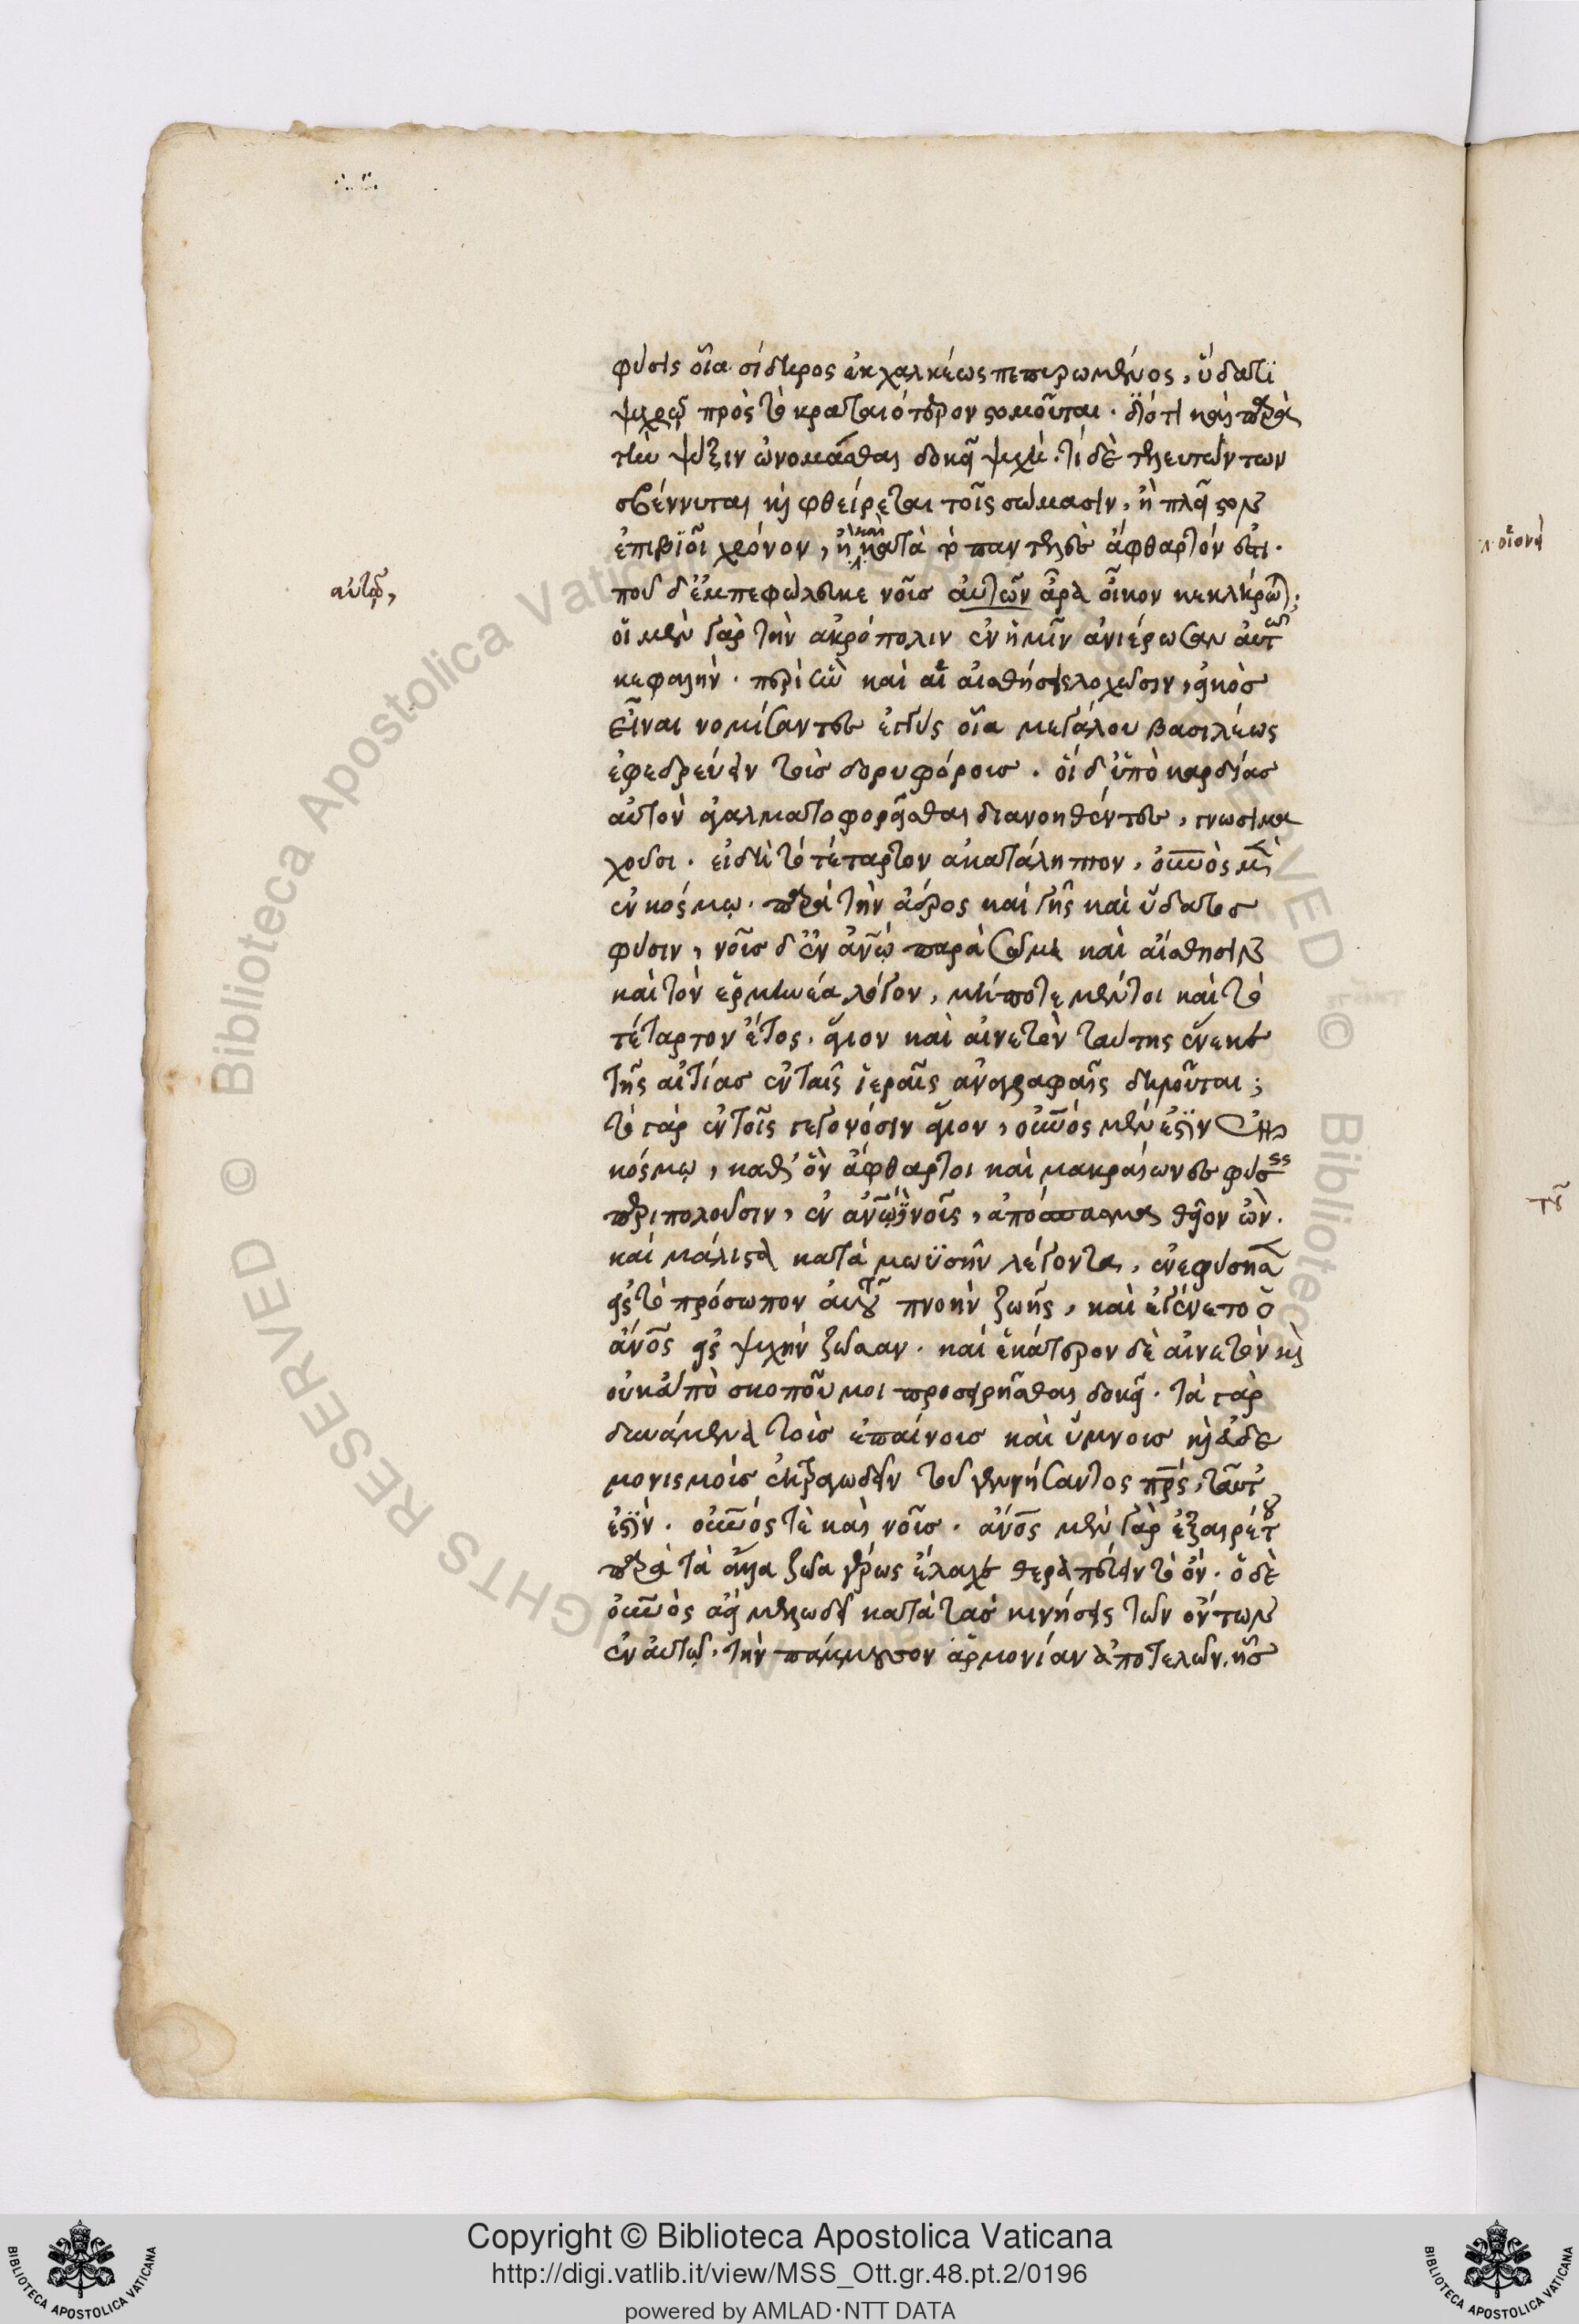 φύσις οἷα σίδηρος ἐκ χαλκέως πεπυρωμένος, ὕδατι
ψυχρῷ πρὸς τὸ κραταιότερον στομοῦται. διότι καὶ παρὰ
τὴν ψύξιν ὠνομάσθαι δοκεῖ ψυχή. τί δὲ τελευτώντων
σβέννυται καὶ φθείρεται τοῖς σώμασιν, ἢ πλεῖστον
ἐπιβιοῖ χρόνον, ἢ καὶ κατὰ τὸ παντελὲς ἄφθαρτόν ἐστι.
αὐτῷ,
ποῦ δ' ἐμπεφώλευκε νοῦς αὐτῶν ἆρα οἶκον κεκλήρωται;
οἱ μὲν γὰρ τὴν ἀκρόπολιν ἐν ἡμῖν ἀνιέρωσαν αὐτῷ
κεφαλήν. περὶ ἣν καὶ αἱ αἰσθήσεις λοχῶσιν, εἰκὸς
εἶναι νομίσαντες ἐγγὺς οἷα μεγάλου βασιλέως
ἐφεδρεύειν τοὺς δορυφόρους. οἱ δ' ὑπὸ καρδίας
αὐτὸν ἀγαλματοφορεῖσθαι διανοηθέντες, γνωσιμα
χοῦσι. ἀεὶ δὴ τὸ τέταρτον ἀκατάληπτον, οὐνὸς μὲν
ἐν κόσμῳ. παρὰ τὴν ἀέρος καὶ γῆς καὶ ὕδατος
φύσιν, νοῦς δ' ἐν ἀνῳ παρὰ σῶμα καὶ αἴσθησιν
καὶ τὸν ἑρμηνέα λόγον, μήποτε μέντοι καὶ τὸ
τέταρτον ἔτος. ἅγιον καὶ αἰνετὸν ταύτης ἕνεκα
τῆς αἰτίας ἐν ταῖς ἱεραῖς ἀναγραφαῖς δηλοῦται;
τὸ γὰρ ἐν τοῖς γεγονόσιν ἅγιον, οὐνός μέν ἐστιν ἐν
κόσμῳ, καθ' ὃν ἄφθαρτοι καὶ μακραίωνες φύσεις
περιπολοῦσιν, ἐν ἀνῳ δὲ νοῦς, ἀπόσπασμα θεῖον ὤν.
καὶ μάλιστα κατὰ μωϋσῆν λέγοντα, ἐνεφύσησεν
εἰς τὸ πρόσωπον αὐτοῦ πνοὴν ζωῆς, καὶ ἐγένετο ὁ
ἄνος εἰς ψυχὴν ζῶσαν. καὶ ἑκάτερον δὲ αἰνετὸν καὶ
οὐκ ἀπὸ σκοποῦ μοι προσειρῆσθαι δοκεῖ. τὰ γὰρ
δυνάμενα τοὺς ἐπαίνους καὶ ὕμνους καὶ εὐδαι
μονισμοὺς ἐκτραγῳδεῖν τοῦ γεννήσαντος πρς, ταῦτ
ἐστίν. οὐνός τε καὶ νοῦς. ἄνος μὲν γὰρ ἐξαιρέτου
παρὰ τὰ ἄλλα ζῶα γέρως ἔλαχε θεραπεύειν τὸ ὄν. ὁ δὲ
οὐνὸς ἀεὶ μελῳδεῖ κατὰ τὰς κινήσεις τῶν ὄντων
ἐν αὐτῷ. τὴν πάμμουσον ἁρμονίαν ἀποτελῶν. ἧς
Copyright © Biblioteca Apostolica Vaticana
http://digi.vatlib.it/view/MSS_Ott.gr.48.pt.2/0196
powered by AMLAD·NTT DATA